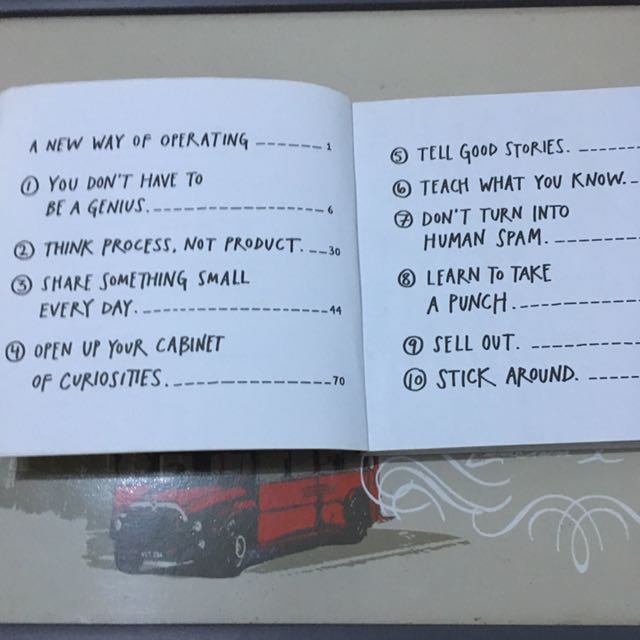 A NEW WAY OF OPERATING ------ 1
① YOU DON'T HAVE TO
BE A GENIUS. ---------------- 6
② THINK PROCESS, NOT PRODUCT. -- 30
③ SHARE SOMETHING SMALL
EVERY DAY. ----------------- 44
④ OPEN UP YOUR CABINET
OF CURIOSITIES. -------------- 70
⑤ TELL GOOD STORIES. -----
⑥ TEACH WHAT YOU KNOW. --
⑦ DON'T TURN INTO
HUMAN SPAM. --------
⑧ LEARN TO TAKE
A PUNCH. -----------
⑨ SELL OUT. ----------
⑩ STICK AROUND. -----